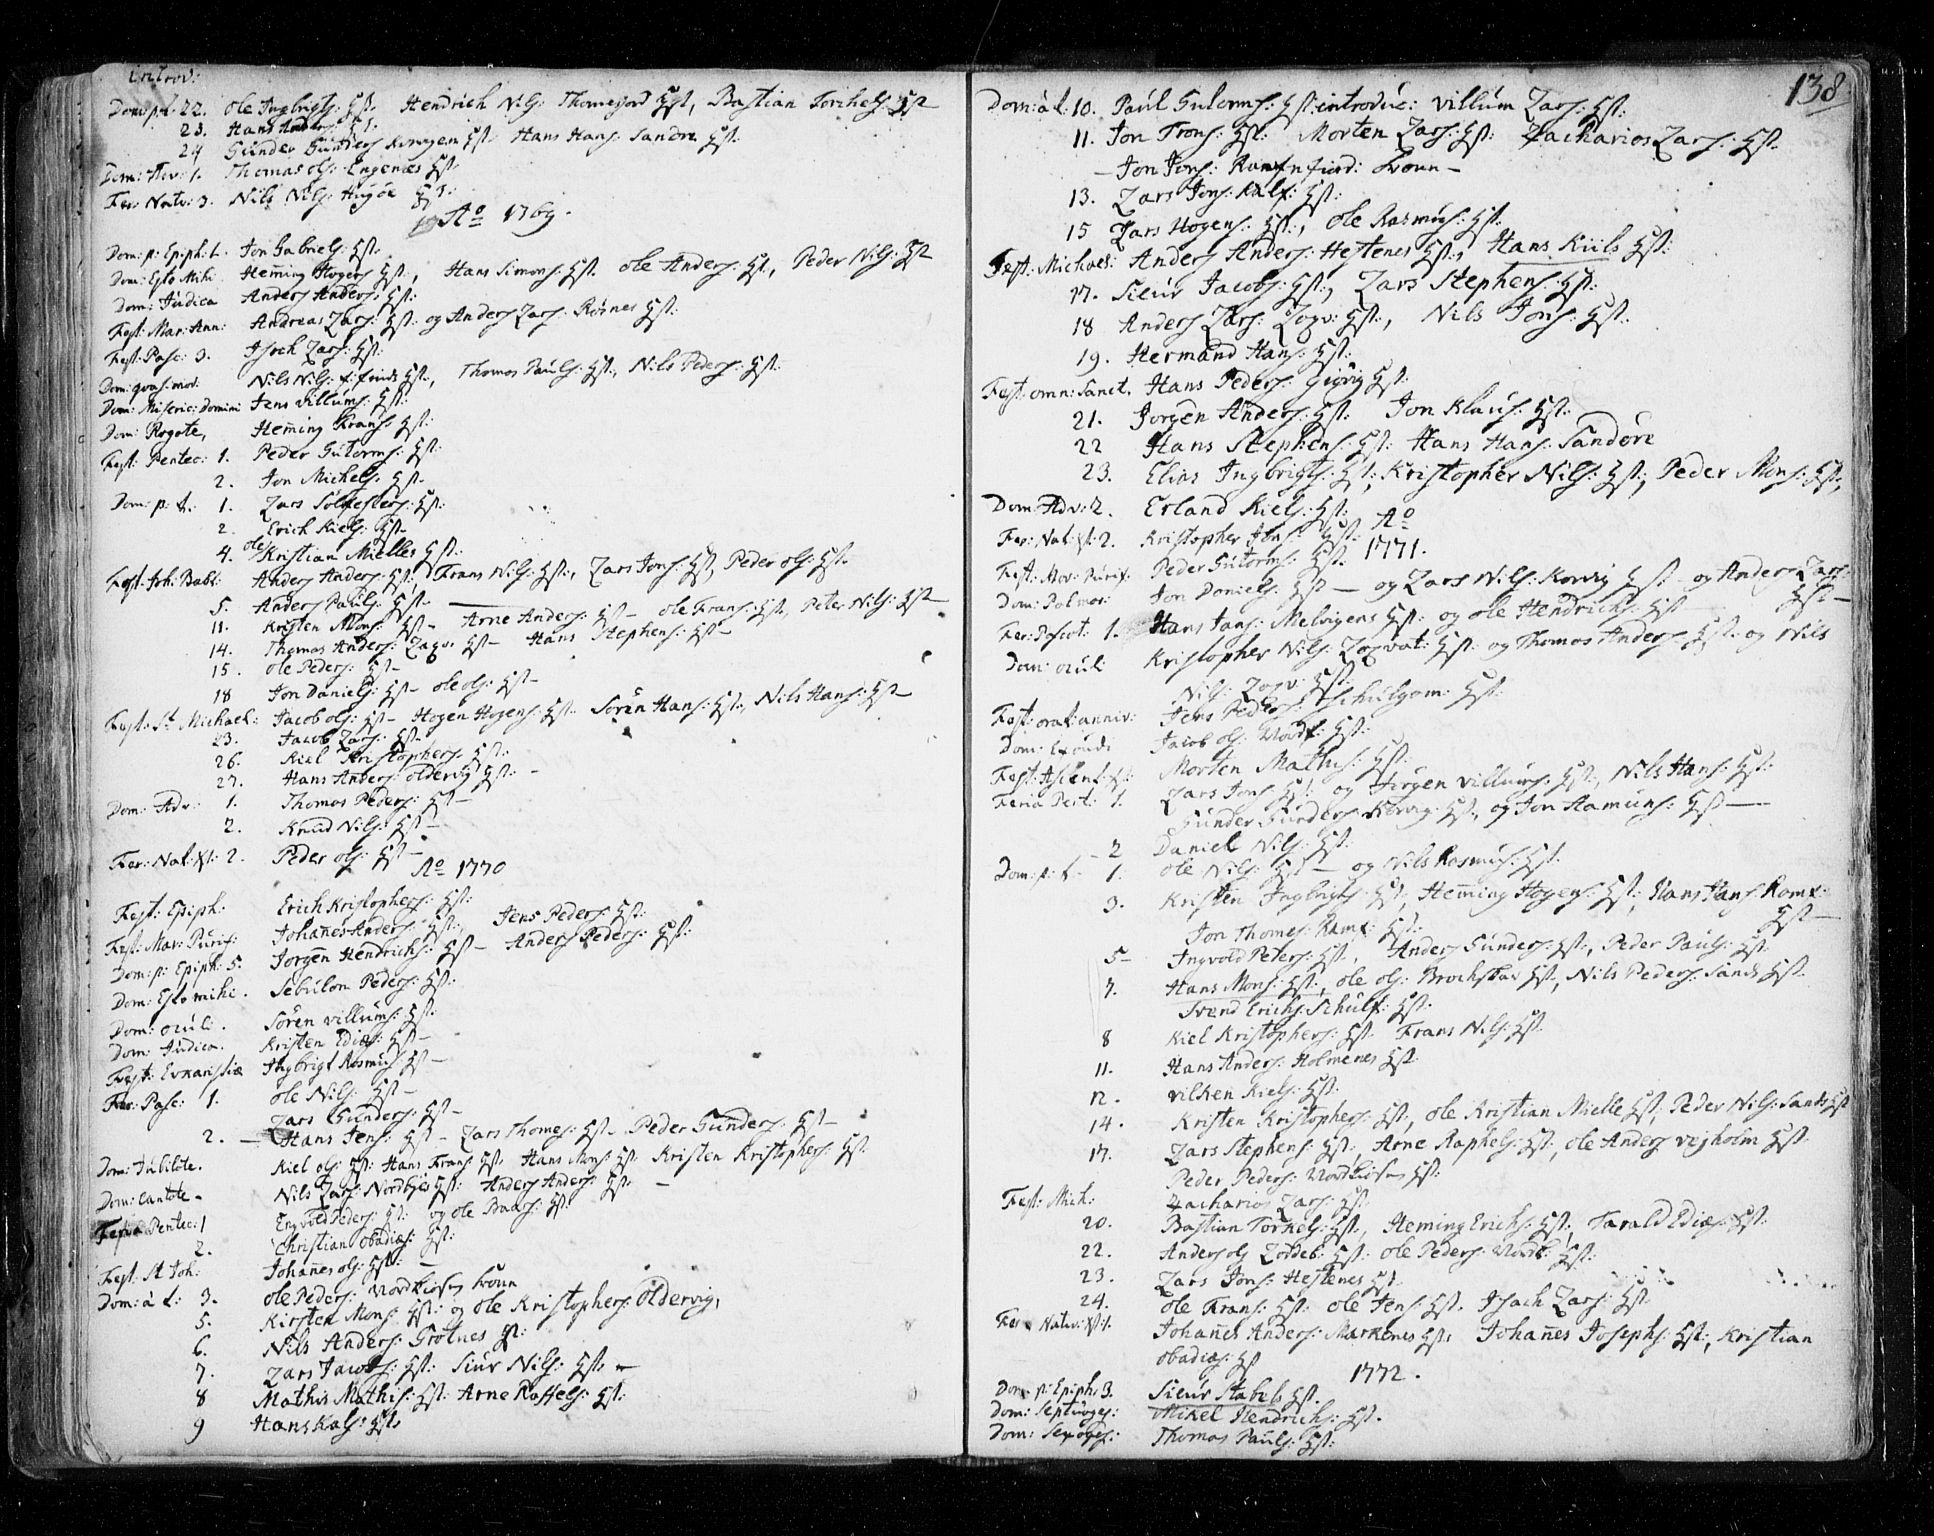 introd:
Dom: p: t: 22. Ole Ingbrigts: Hst. Hendrich Nils: Thomesjord Hst, Bastian Torchels: Hst
23. Hans Anders: Hst.
24 Gunder Gunders Korvigen Hst. Hans Hans: Sandøre Hst.
Dom: Adv: 1. Thomas Ols: Engenæs Hst
Fer: Nativ: 3. Nils Nils: Hst.
Ao 1769.
Dom: p: Epiph: 1. Jon Gabriels: Hst.
Dom: Esto Mihi Heming Hogens Hst:, Hans Simons: Hst. Ole Anders: Hst, Peder Nils: Hst
Dom: Judica Anders Anders: Hst:
Fest: Mar: Ann: Andreas Zars: Hst: og Anders Zars: Røsnes Hst:
Fest: Pasc: 3. Isach Zars: Hst:
Dom: qvas: mod: Nils Nils: Hst:, Thomas Pauls: Hst:, Nils Peders: Hst:
Dom: Miseric: Domini Jens Villums: Hst:
Dom: Rogate, Heming Frans: Hst:
Fest: Pentec: 1. Peder Gutorms: Hst:
2. Jon Michels: Hst.
Dom: p: t. 1. Zars Sølfesters: Hst:
2. Erich Kiels: Hst.
4. Ole Kristian Mielles Hst:
Fest: Joh: Babt: Anders Anders: Hst:, Frans Nils: Hst:, Zars Jons: Hst, Peder Ols: Hst.
5. Anders Pauls: Hst.
11. Kristen Mons: Hst – Arne Anders: Hst – Ole Frans: Hst, Peter Nils: Hst –
14. Thomas Anders: Zogv: Hst – Hans Stephens: Hst –
15. Ole Peders: Hst –
18 Jon Daniels: Hst – Ole Ols: Hst –
Fest: St Michael: Jacob Ols: Hst – Hogen Hogens: Hst. Søren Hans: Hst:, Nils Hans: Hst –
23. Jacob Zars: Hst.
26. Kiel Kristophers: Hst:
27. Hans Anders: Oldervig Hst: –
Dom: Adv: 1. Thomas Peders: Hst –
2. Knud Nils: Hst –
Fer: Nat: Xt: 2. Peder Ols: Hst –
Ao 1770
Fest: Epiph: Erich Kristophers: Hst:
Fest: Mar: Purif: Johañes Anders: Hst:, Jens Peders: Hst:
Dom: p: Epiph: 5. Jorgen Hendrichs: Hst – Anders Peders: Hst:
Dom: Esto mihi. Sebulon Peders: Hst:
Dom: Oculi. Søren Villums: Hst:
Dom: Judica. Kristen Edias: Hst –
Fest: Evkaristiæ Ingbrigt Rasmus: Hst –
Fer: Pasc: 1. Ole Nils: Hst –
Zars Gunders: Hst –
2. – Hans Jens: Hst – Zars Thomes: Hst – Peder Gunders: Hst –
Dom: Jubilate. Kiel Ols: Hst: Hans Frans: Hst. Hans Mons: Hst Kristen Kristophers: Hst.
Dom: Cantate – Nils Zars: Hst: Anders Anders: Hst: –
Feria Pentec: 1 Engvold Peders: Hst: og Ole Baars: Hst:
2. Christian Obadias: Hst:
Fest: St Joh: Johañes Ols: Hst: –
Dom: á t: 3. Ole Peders:
5. Kirsten Mons: Hst: og Ole Kristophers: Oldervig,
6. Nils Anders: Grotnes Hst:
7. Zars Jacobs: Hst: Siur Nils: Hst. –
8 Mathis Mathis: Hst: Arne Raffels: Hst:
9 Hans Kals: Hst.
138
Dom: á t: 10. Paul Gutorms: Hst: introduc: Villum Zars: Hst:
11. Jon Trons: Hst: Morten Zars: Hst: Zacharias Zars: Hst.
– Jon Jons:
13. Zars Jons: Kalf: Hst:
15 Zars Hogens: Hst:, Ole Rasmus: Hst:
Fest: Michael: Anders Anders: Hestenes Hst:, Hans Kiils Hst:
17. Sieur Jacobs: Hst:, Zars Stephens: Hst:
18 Anders Zars: Zogv: Hst:, Nils Jons: Hst:
19. Hermand Hans: Hst:
Fest: omn: Sanct. Hans Peders: Hst:
21. Jorgen Anders: Hst: Jon Klaus: Hst:
22 Hans Stephens: Hst: Hans Hans: Sandøre
23. Elias Ingbrigts: Hst:, Kristopher Nils: Hst:, Peder Mons: Hst.
Dom: Adv: 2. Erland Kiels: Hst:
Ao
Fer: Nat: Xt: 2. Kristopher Jons: Hst: 1771.
Fest: Mar: Purif: Peder Gutorms: Hst:
Dom: Palmar: Jon Daniels: Hst – og Zars Nils: Korvig Hst – og Anders Zars: Hst –
Fer: Pascat: 1. Hans Hans: Melvigens Hst: og Ole Hendrichs: Hst
Dom: Oculi Kristopher Nils: Zogvat: Hst: og Thomas Anders: Hst: og Nils
Nils: Zogv: Hst:
Fest: orat: anniv: Jens Peders: Hst:
Dom: Exaudi Jacob Ols: Hst:
Fest: Ascens: Xt: Morten Mathis: Hst:
Feria Pent: 1. Zars Jons: Hst: og Jørgen Villums: Hst:, Nils Hans: Hst:
Gunder Gunders: Korvig: Hst:, og Jon Aamuns: Hst –
– 2 Daniel Nils: Hst:
Dom: p: t. 1. Ole Nils: Hst – og Nils Rasmus: Hst.
3. Kristen Ingbrigts: Hst, Heming Hogens: Hst:, Hans Hans: Ramf: Hst –
Jon Thomes: Ramf: Hst:
5 – Ingvold Peters: Hst:, Anders Gunders: Hst:, Peder Pauls: Hst
7. Hans Mons: Hst:, Ole Ols: Hst, Nils Peders: Sands Hst.
Svend Erichs: Schulf: Hst:
8 Kiel Kristophers: Hst Frans Nils: Hst
11. Hans Anders: Holmenes Hst
12. Vilken Kiels: Hst:
14. Kristen Kristophers: Hst:, Ole Kristian Mielle Hst:, Peder Nils: Sands Hst
17. Zars Stephens: Hst:, Arne Raphels: Hst:, Ole Anders: Vejholm Hst
Peder Peders: Hst:
Fest: Mich: Zacharias Zars: Hst:
20. Bastian Torkels: Hst:, Heming Erichs: Hst:, Tarald Edias: Hst:
22. Anders Ols Hst: Ole Peders: Hst:
23. Zars Jons: Hestenes Hst
24. Ole Frans: Hst: Ole Jens: Hst. Isach Zars: Hst
Fer: Nativ: Xt: 1. Johañes Anders: Markenes Hst: Johañes Josephs: Hst:, Kristian
Obadias: Hst
1772.
Dom: p: Epiph: 3. Sieur Stabels Hst.
Dom: Septuages: Mikel Hendrichs: Hst.
Dom: Sexages: Thomas Pauls: Hst: